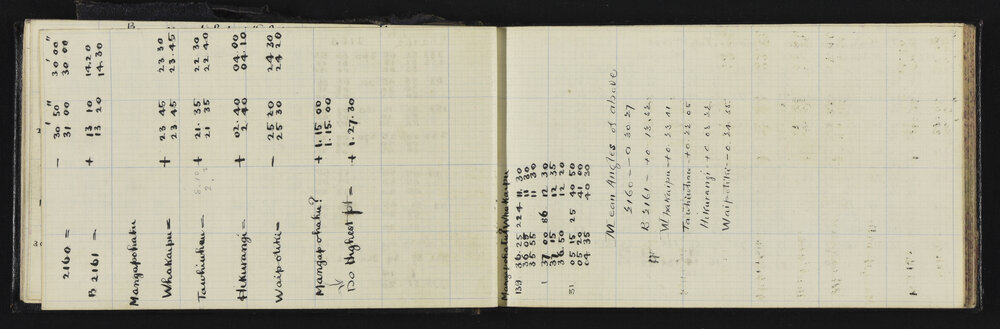 2160 = − 30' 50" 30' 00"
31 00 30 00
B 2161 − + 13 10 14.20
13 20 14.30
Mangapohatu
Whakaipu = + 23 45 23 30
23 45 23.45
Tawhiuhau = + 21.35 22 30
21 35 22 40
Hikurangi = + 02 40 04.00
2 40 04.10
Waipotiki = − 25 20 24 30
25 30 24 20
Mangapohatu? + 1.15.00
1.15.00
Do Highest pt = + 1.27.30
Whakaipu
139 36.25 224 11. 30
11 30
35 55
1 37 00 86 12 30
37 15 12 35
36.50 12 20
31 05 15 25 40 50
05 20 41 00
04 35 40 30
Mean Angles of above
2160 − −0 30 27
B 2161 − +0 13.52
Whakaipu − +0 23 41
Tawhiuhau − +0 22 05
Hikurangi +0 03 22
Waipotiki − 0 24 55